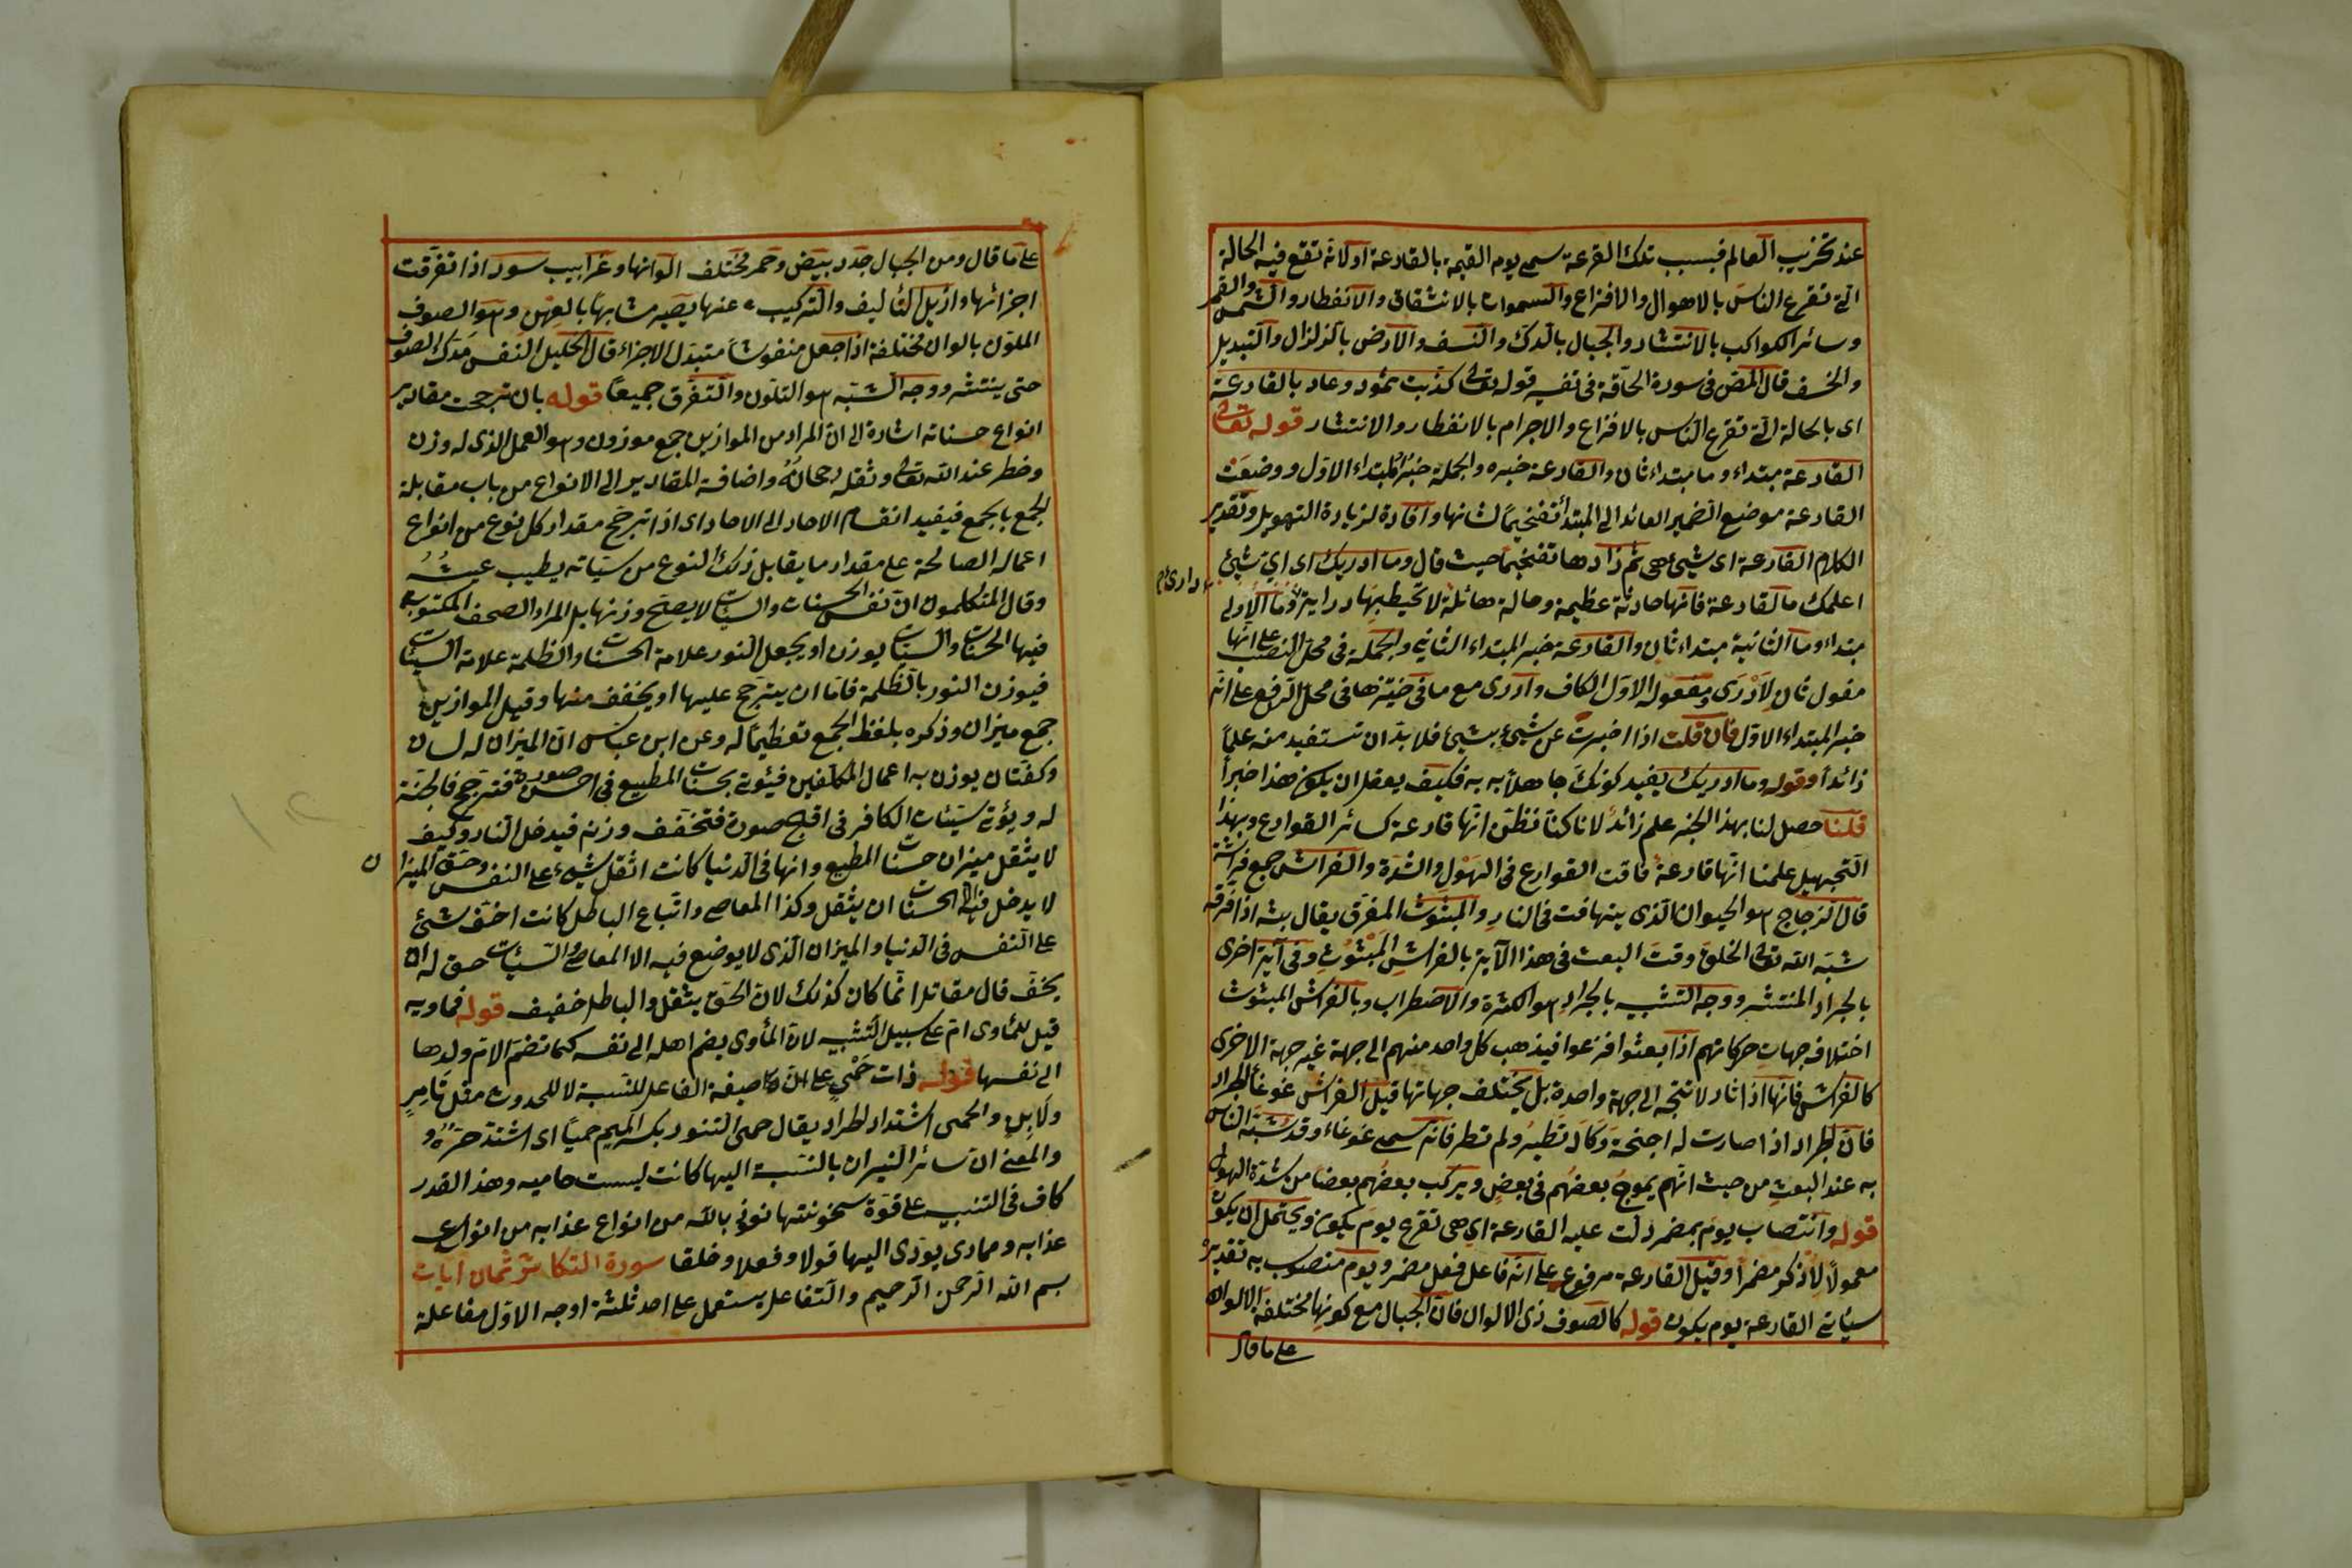 عند تخريب العالم فبسبب تلك القرعة سمى يوم القيمة بالقارعة او لانه تقع فيه الحالة
التى تقرع الناس بالاهوال والافزاع والسموات بالانشقاق والانفطار والشمس والقمر
وسائر الكواكب بالانتثار والجبال بالدك والنسف والارض بالزلزال والتبديل
والخسف قال المص فى سورة الحاقة فى تفسير قوله تعالى كذبت ثمود وعاد بالقارعة
اى بالحالة التى تقرع الناس بالافزاع والاجرام بالانفطار والانتثار قوله تعالى
القارعة مبتداء وما مبتداء ثان والقارعة خبره والجملة خبر المبتداء الاول ووضعت
القارعة موضع الضمير العائد الى المبتدأ تفخيما لشانها وافادة لزيادة التهويل وتقدير
الكلام القارعة اى شيئ هى ثم زادها تفخيما حيث قال وما ادريك اى اي شيئ
اعلمك ما القارعة فانها حادثة عظيمة وحالة هائلة لا تحيط بها دراية وما الاولى
مبتداء وما الثانية مبتداء ثان والقارعة خبر المبتداء الثانى والجملة فى محل النصب على انها
مفعول ثان لأدرى ومفعوله الاول الكاف وادرى مع ما فى حيزها فى محل الرفع على انه
خبر المبتداء الاول فان قلت اذا اخبرت عن شيئ بشيئ فلا بد ان تستفيد منه علما
زائدا وقوله وما ادريك يفيد كونك جاهلا به فكيف يعقل ان يكون هذا خبرا
قلنا حصل لنا بهذا الخبر علم زائد لانا كنا نظن انها قارعة كسائر القوارع وبهذا
التجهيل علمنا انها قارعة فاقت القوارع فى الهول والشدة والفراش جمع فراشة
قال الزجاج هو الحيوان الذى يتهافت فى النار والمبثوث المفرق يقال بثه اذا فرقه
شبه الله تعالى الخلق وقت البعث فى هذا الآية بالفراش المبثوث وفى آية اخرى
بالجراد المنتشر ووجه التشبيه بالجراد هو الكثرة والاضطراب وبالفراش المبثوث
اختلاف جهات حركاتهم اذا بعثوا فزعوا فيذهب كل واحد منهم الى جهة غير جهة الاخرى
كالفراش فانها اذا ثار لا تتجه الى جهة واحدة بل يختلف جهاتها قيل الفراش غوغأ الجراد
فان الجراد اذا صارت له اجنحة وكاد تطير ولم تطر فانه سمى غوغاء وقد شبه الناس
به عند البعث من حيث انهم يموج بعضهم فى بعض ويركب بعضهم بعضا من شدة الهول
قوله وانتصاب يوم بمضمر دلت عليه القارعة اى هى تقرع يوم يكون ويحتمل ان يكون
معمولا لاذكر مضمرا وقيل القارعة مرفوع على انه فاعل فعل مضمر ويوم منصوب به تقديره
سيأتى القارعة يوم يكون قوله كالصوف ذى الالوان فان الجبال مع كونها مختلفة الالوان
على ما قال
على ما قال ومن الجبال جدد بيض وحمر مختلف الوانها وغرابيب سود اذا تفرقت
اجزائها وازيل التأليف والتركيب عنها يصير مشابها بالعهن وهو الصوف
الملون بالوان مختلفة اذا جعل منفوشا متبدل الاجزاء قال الخليل النفس مدك الصوف
حتى ينتشر ووجه الشبه هو التلون والتفرق جميعا قوله بان ترجحت مقادير
انواع حسناته اشارة الى ان المراد من الموازين جمع موزون وهو العمل الذى له وزن
وخطر عند الله تعالى وثقله رجحانه واضافة المقادير الى الانواع من باب مقابلة
الجمع بالجمع فيفيد انقسام الاحاد الى الاحاد اى اذا ترجح مقدار كل نوع من انواع
اعماله الصالحة على مقدار ما يقابل ذلك النوع من سيآته يطيب عيشه
وقال المتكلمون ان نفس الحسنات والسيآت لا يصح وزنها بل المراد الصحف المكتوب
فيها الحسنات والسيآت يوزن او يجعل النور علامة الحسنات والظلمة علامة السيئات
فيوزن النور بالظلمة فاما ان يترجح عليها او يخفف منها وقيل الموازين
جمع ميزان وذكره بلفظ الجمع تعظيما له وعن ابن عباس ان الميزان له لسان
وكفتان يوزن به اعمال المكلفين فيئوتى بحسنات المطيع فى احسن صورة فترجح فالجنة
له ويؤتى سيئات الكافر فى اقبح صورة فتخفف وزنه فيدخل النار وكيف
لا يثقل ميزان حسنات المطيع وانها فى الدنيا كانت اثقل شيء على النفس وحق الميزان
لا يدخل فيه الا الحسنات ان يثقل وكذا المعاصى واتباع الباطل كانت اخف شئ
على النفس فى الدنيا والميزان الذى لا يوضع فيه الا المعاصى والسيئات حق له ان
يخف قال مقاتل انما كان كذلك لان الحق يثقل والباطل خفيف قوله فماويه
قيل للمأوى ام على سبيل التشبيه لان المأوى يضم اهله الى نفسه كما تضم الام ولدها
الى نفسها قوله ذات حمى على ان صيغة الفاعل للنسبة لا للحدوث مثل تامر
ولابن والحمى اشتداد الحرارة يقال حمى التنور بكسر الميم حميا اى اشتد حره و
والمعنى ان سائر النيران بالنسبة اليها كانت ليست حاميه وهذا القدر
كاف فى التنبيه على قوة سخونتها نوذ بالله من انواع عذابه من انواع
عذابه ومما دى يؤدى اليها قولا وفعلا وخلقا سورة التكاثر ثمان آيات
بسم الله الرحمن الرحيم والتفاعل يستعمل على احد ثلثة اوجه الاول مفاعلة